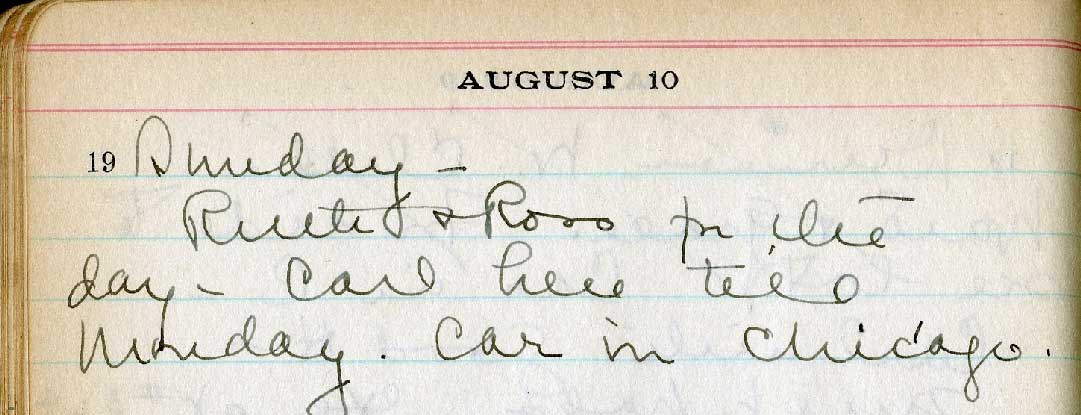 AUGUST 10
19 Sunday –
Ruth & Ross for the
day – Carl here till
Monday. Car in Chicago.